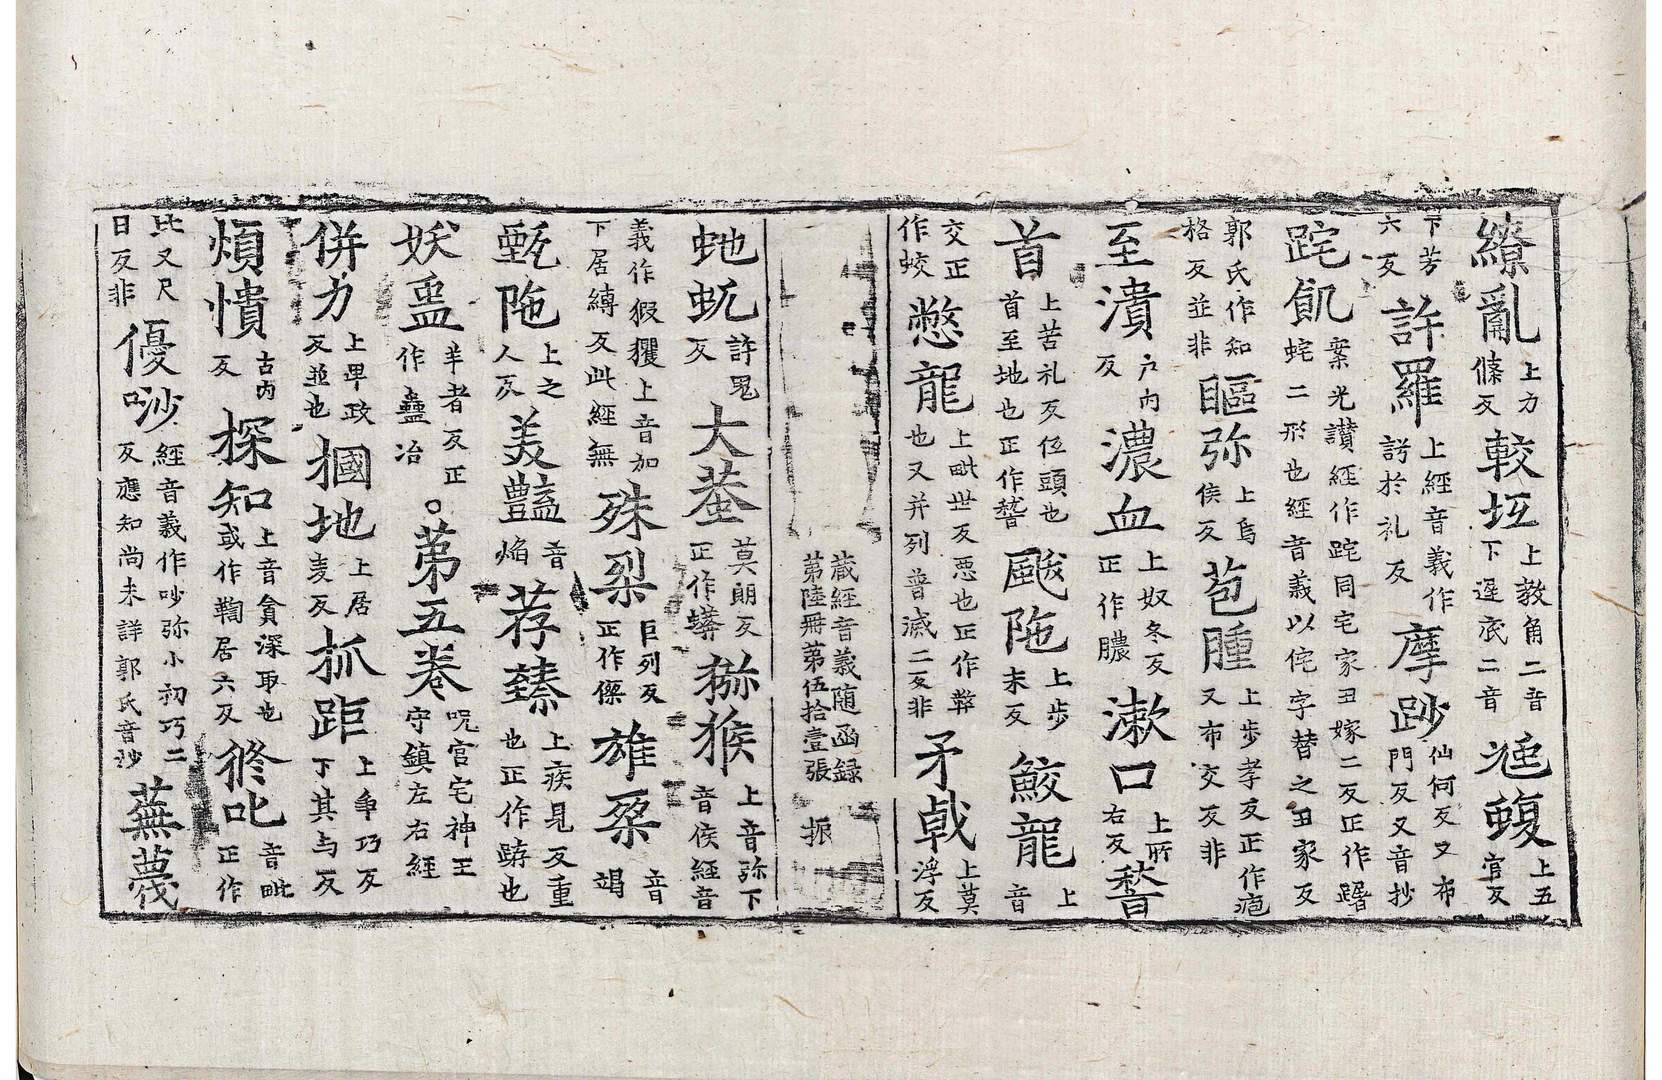 繚亂上力條反較㧍上教角二音下遲底二音虺蝮上五官反
下芳六反許羅上經音義作訶於礼反摩䟞門反又音抄仙何反又布
䟕飢案光讃經作䟕同宅家丑嫁二反正作蹃蛇二形也經音義以侘字替之丑家反
郭氏作知格反並非䁱弥上烏侯反苞腫上步孝反正作疱又布交反非
至潰户內反濃血上奴冬反正作膿漱口上所右反䭫
首上苦礼反伍頭也首至地也正作䭫颰陁上步末反鮫龍上音
交正作蛟憋龍上毗世反惡也正作弊也又并列普滅二反非矛戟上莫浮反
藏經音義随函録第陸冊第伍拾壹張 振
虵虺許鬼反大䖟莫朗反正作蟒獼猴上音弥下音侯經音
義作猳玃上音加下居縛反此經無殊梨巨列反正作傑雄䅗音竭
甄陁上之人反美豔音焰荐臻上疾見反重也正作䟻也
妖蛊羊者反正作蠱冶。苐五卷呪官宅神王守鎮左右經
併力上畢政反並也摑地上居麦反抓距上爭巧反下其与反
煩憒古内反探知上音貪深取也或作鞫居六反𢓜叱音毗正作
毗又尺日反非優唦經音義作吵弥小初巧二反應知尚未詳郭氏音沙蕪蔑